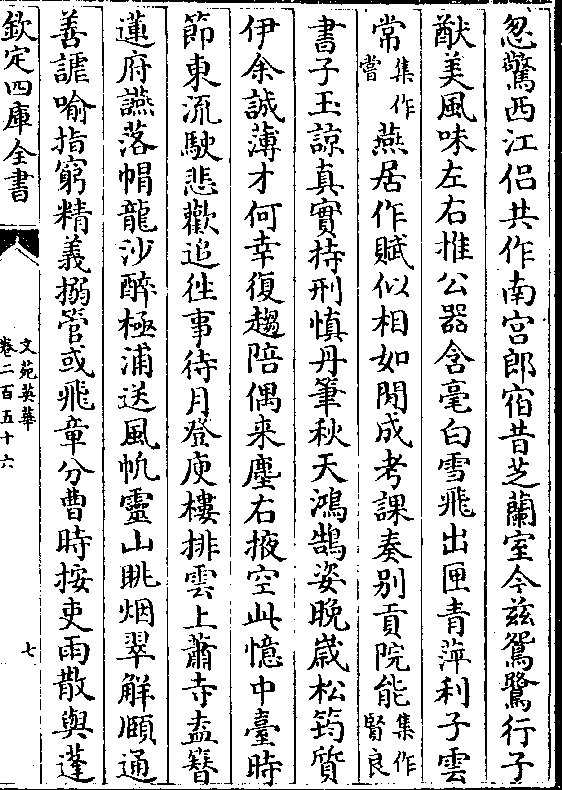 忽驚西江侣共作南宫郎宿昔芝蘭室今兹鴛鷺行子
猷美風味左右推公器含毫白雪飛出匣青萍利子雲
常集作嘗燕居作賦似相如閒成考課奏别貢院能集作賢良
書子玉諒真實持刑慎丹筆秋天鴻鵠姿晚歳松筠質
伊余誠薄才何幸復趨陪偶来塵右掖空此憶中臺時
節東流駛悲歡追徃事待月登庾樓排雲上蕭寺盍簪
蓮府讌落帽龍沙醉極浦送風帆靈山眺烟翠解頤通
善謔喻指窮精義搦管或飛章分曹時按吏雨散與蓬
欽定四庫全書
文苑英華
卷二百五十六
七